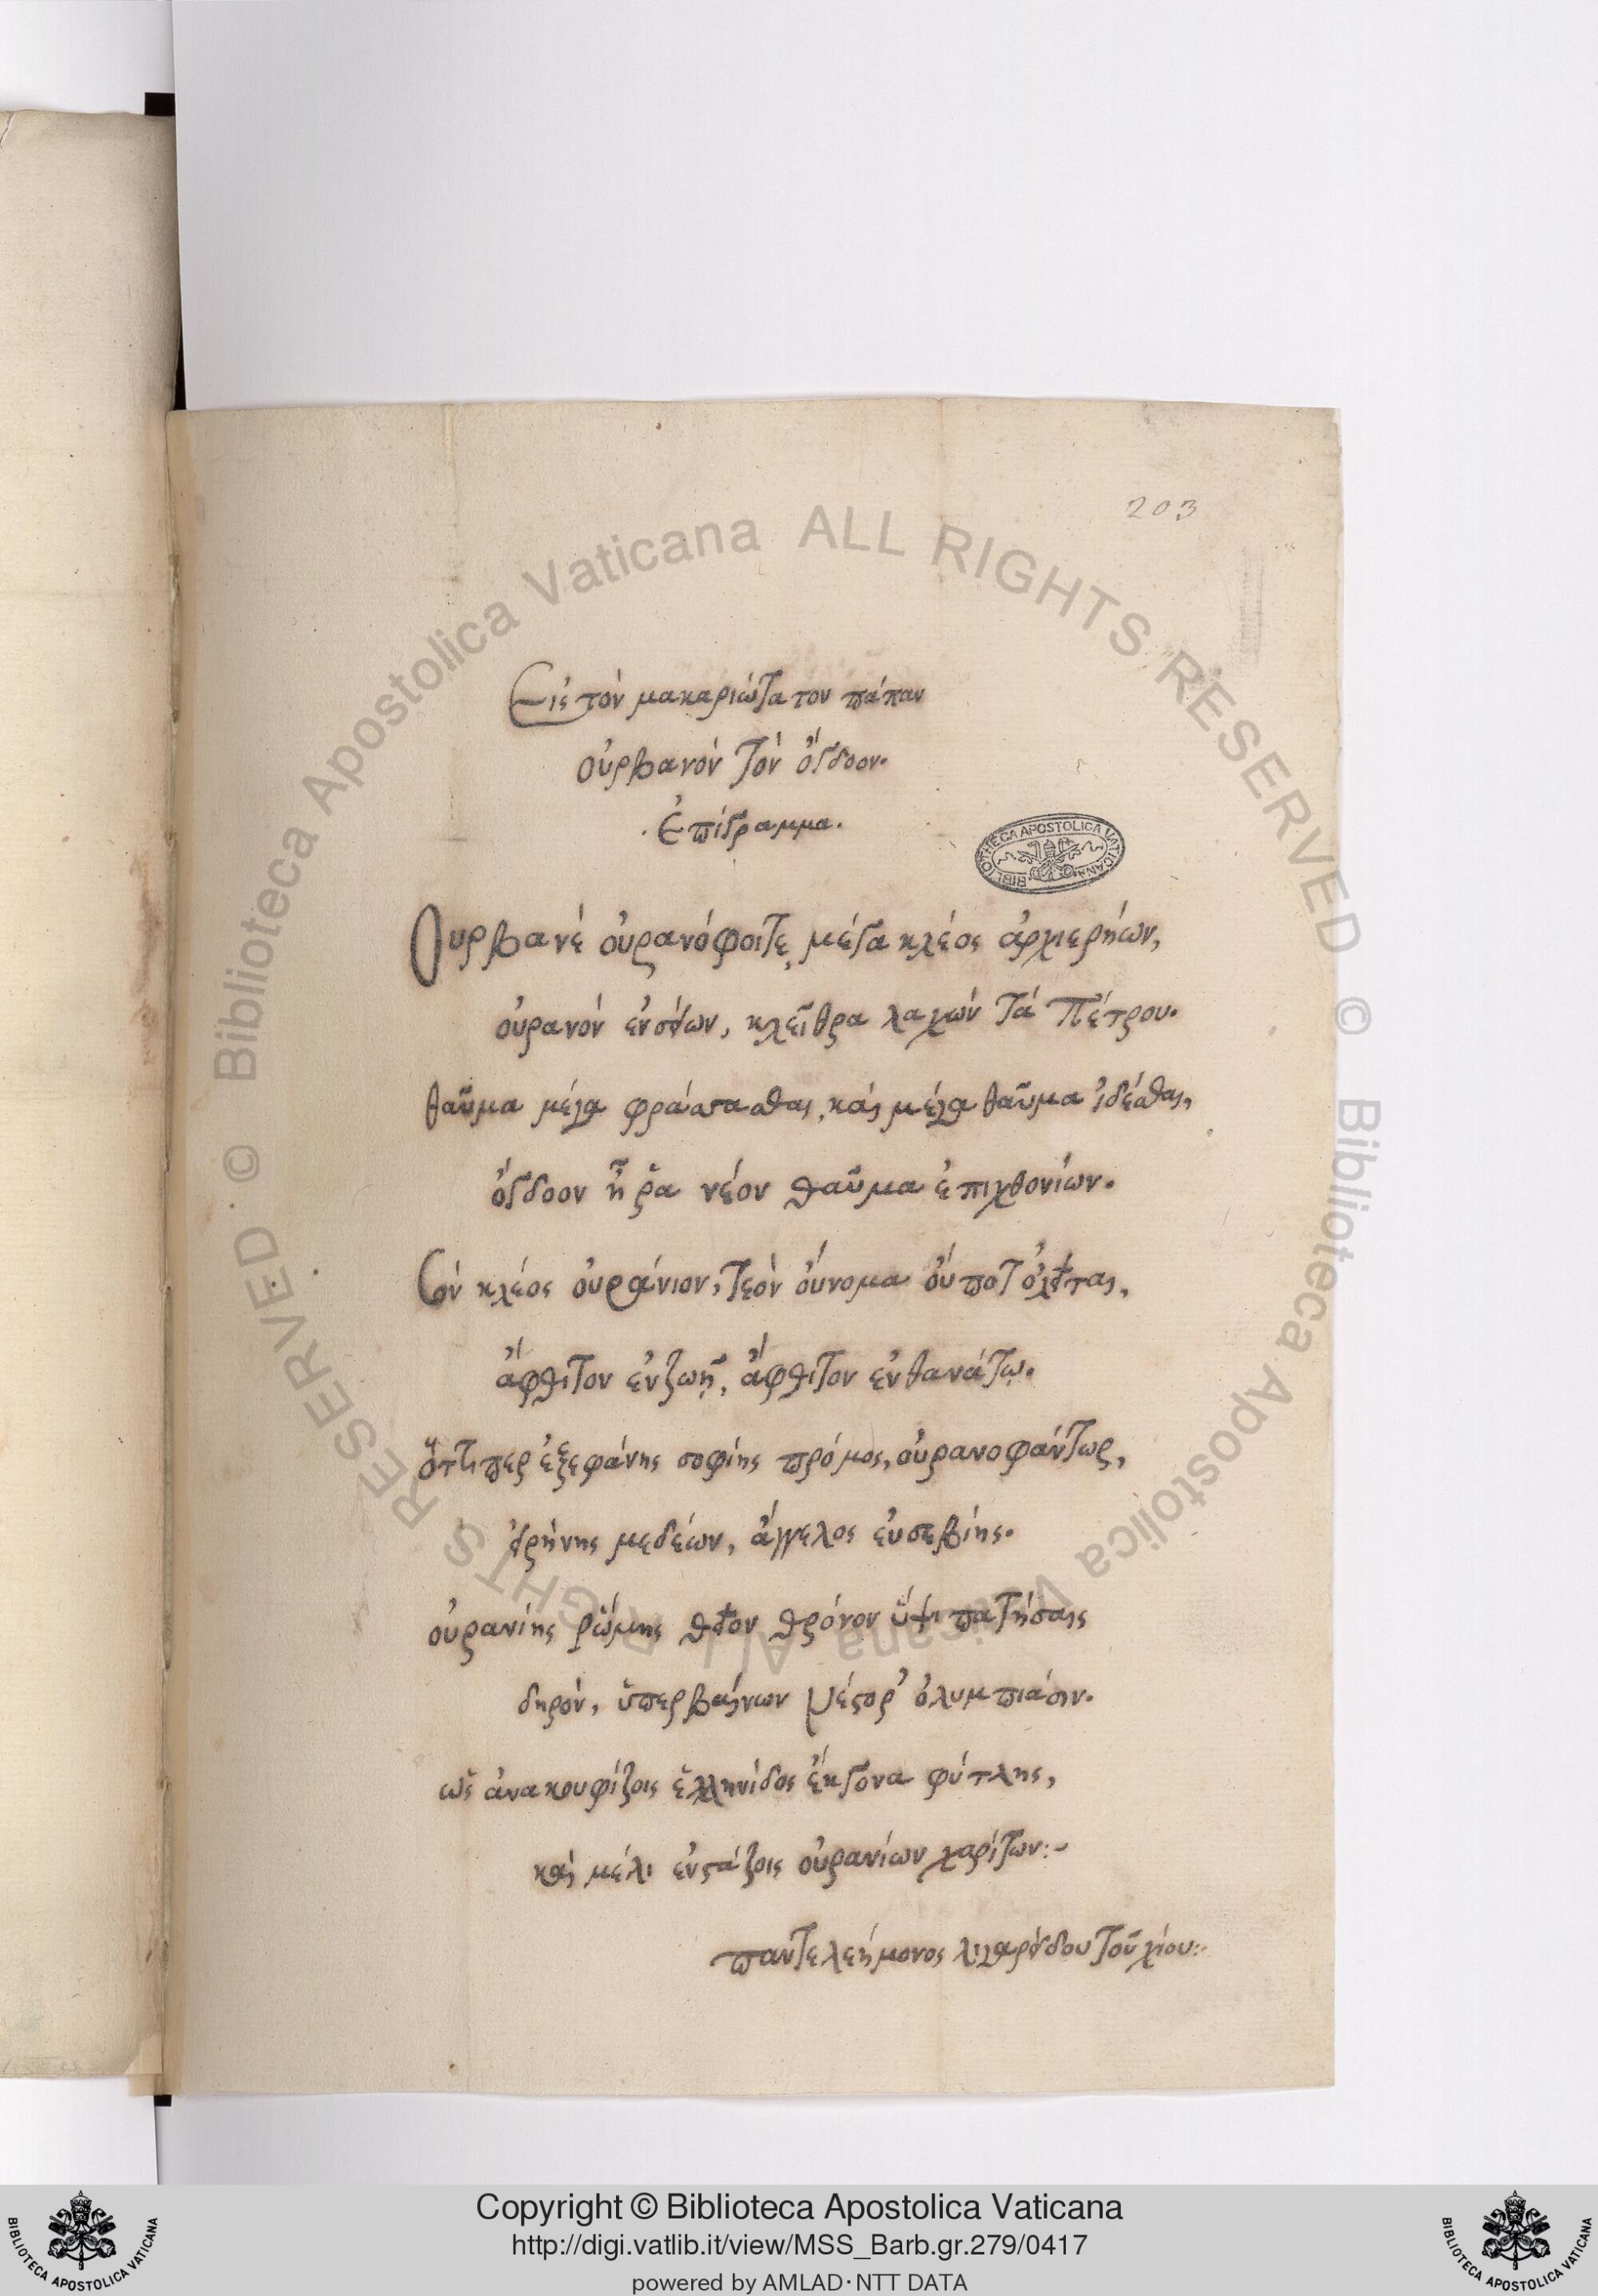 203
Εἰς τὸν μακαριώτατον πάπαν
οὐρβανὸν τὸν ὄγδοον.
·Ἐπίγραμμα.
BIBLIOTHECA APOSTOLICA VATICANA
Οὐρβανὲ οὐρανόφοιτε, μέγα κλέος ἀρχιερήων,
οὐρανὸν εἰσάγων, κλεῖθρα λαχὼν τὰ Πέτρου.
θαῦμα μέγα φράσασθαι, καὶ μέγα θαῦμα ἰδέσθαι,
ὄγδοον ἦ ῥα νέον θαῦμα ἐπιχθονίων.
Σὸν κλέος οὐράνιον, τεὸν οὔνομα οὔποτ ὀλεῖται,
ἄφθιτον ἐν ζωῇ, ἄφθιτον ἐν θανάτῳ.
ὅττιπερ ἐξεφάνης σοφίης πρόμος, οὐρανοφάντωρ,
εἰρήνης μεδέων, ἄγγελος εὐσεβίης.
οὐρανίης ῥώμης θεῖον θρόνον ὕψι πατήσαις
δηρὸν, ὑπερβαίνων Νέστορ' ὀλυμπιάσιν.
ὡς ἀνακουφίζοις ἑλληνίδος ἔκγονα φύτλης,
καὶ μέλι ἐνστάζοις οὐρανίων χαρίτων:~
παντελεήμονος λιγαρίδου τοῦ χίου:~
© Biblioteca Apostolica Vaticana ALL RIGHTS RESERVED © Biblioteca Apostolica Vaticana ALL RIGHTS RESERVED
Copyright © Biblioteca Apostolica Vaticana
http://digi.vatlib.it/view/MSS_Barb.gr.279/0417
powered by AMLAD·NTT DATA
BIBLIOTECA APOSTOLICA VATICANA
BIBLIOTECA APOSTOLICA VATICANA